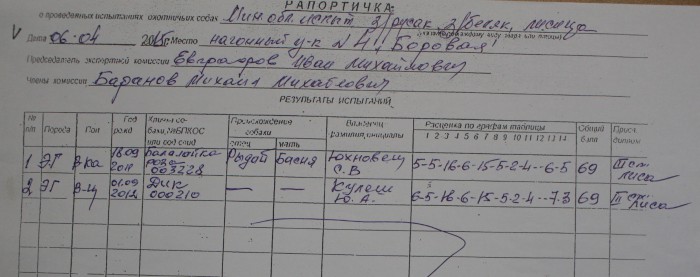 РАПОРТИЧКА
о проведенных испытаниях охотничьих собак Мин.обл.испыт з/русак, з/беляк, лисица
Дата 06.04 2015г. Место нагонный у-к N 4 „Боровая"
Председатель экспертной комиссии Евпрахоров Иван Михайлович
Члены комиссии Баранов Михаил Михайлович
РЕЗУЛЬТАТЫ ИСПЫТАНИЙ
№ п/п Порода Пол Год рожд Кличка собаки, №ВПКОС или род. свид Происхождение собаки отец мать Владелец фамилия, инициалы Расценка по графам таблицы 1 2 3 4 5 6 7 8 9 10 11 12 13 14 Общий балл Присв. диплом
1 ЭГ в-ка 18.09 2011 Балалайка 003228 Рыдай Басня Юхновец С.В 5-5-16-6-15-5-2-4--6-5 69 III ст. лиса
2 ЭГ в-ц 01.09 2012 Дик 000210 — — Кулеш Ю.А. 6-5-16-6-15-5-2-4--7-3 69 III ст. лиса